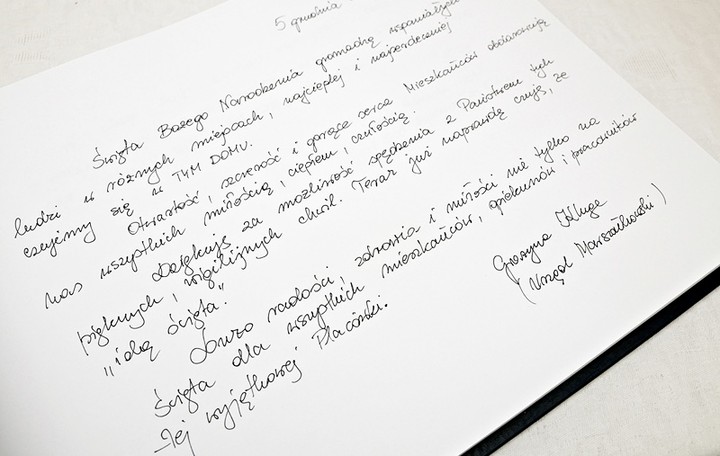 5 grudnia
Święta Bożego Narodzenia gromadzą wspaniałych
ludzi w różnych miejscach, najcieplej i najserdeczniej
czujemy się w TYM DOMU.
Otwartość, szczerość i gorące serca Mieszkańców obdarowują
nas wszystkich miłością, ciepłem, czułością.
Dziękuję za możliwość spędzenia z Państwem tych
pięknych, wigilijnych chwil. Teraz już naprawdę czuję, że
„idą święta".
Dużo radości, zdrowia i miłości nie tylko na
Święta dla wszystkich mieszkańców, opiekunów i pracowników
-Tej wyjątkowej Placówki.
Grażyna Kluge
(Urząd Marszałkowski)